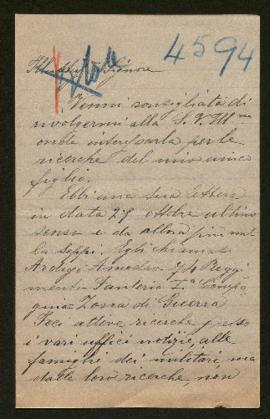 4594
Signore
Venni consigliata di
rivolgermi alla S. V. Ill.ma
onde interessarla per le
ricerche del mio unico
figlio.
Ebbi una sua lettera
in data 27 ottbre ultimo
scorso e da allora più nul-
la seppi. Egli chiamasi
Amedeo Reggi-
mento Fanteria Compa-
gnia - Zona di Guerra
Feci attive ricerche presso
i vari uffici notizie, alle
famiglie dei militari ma
dalle loro ricerche, non